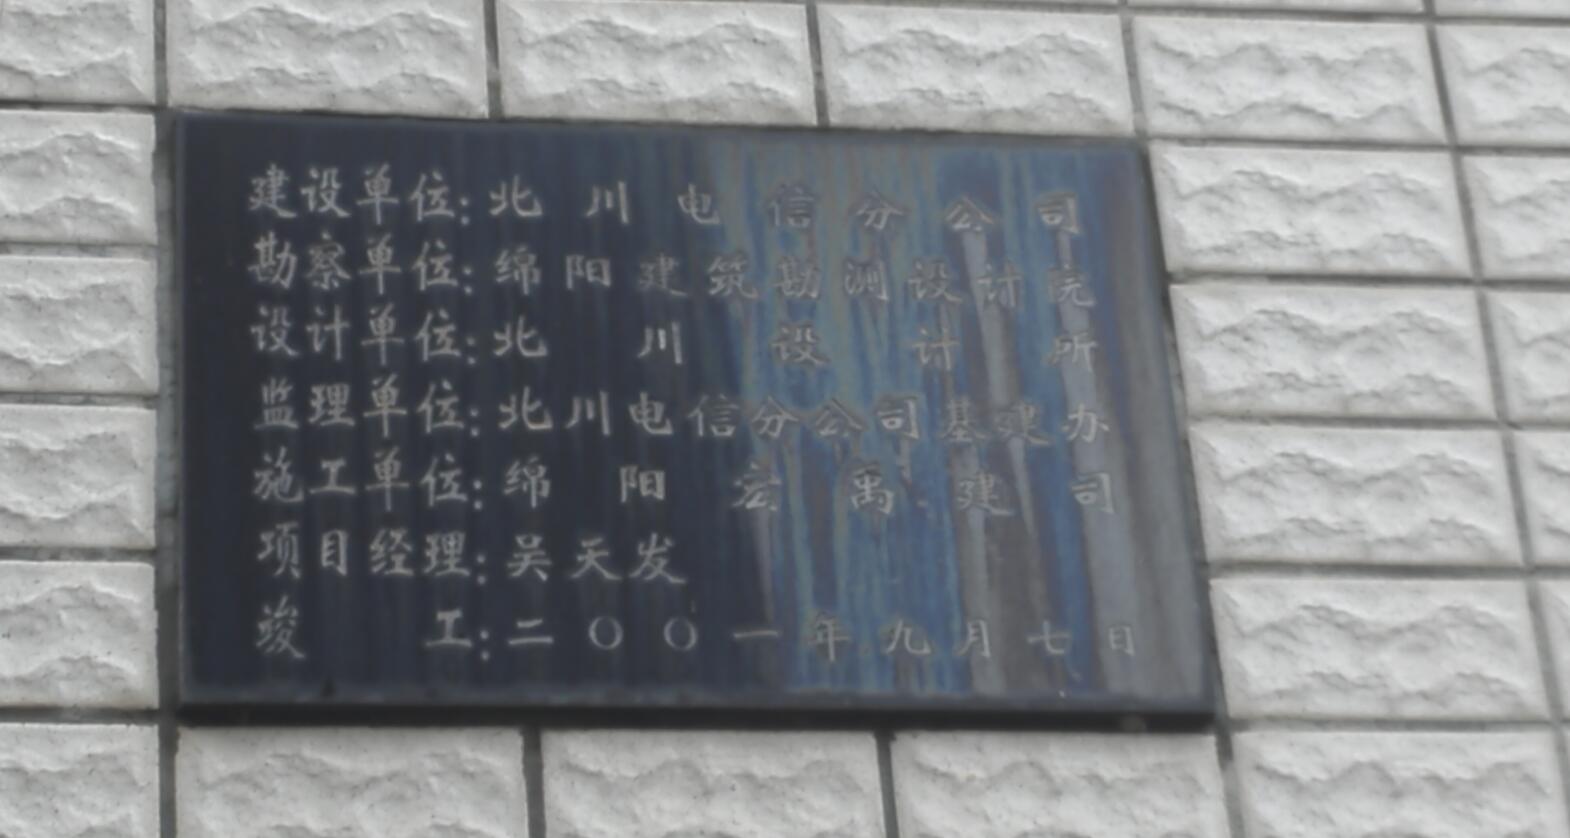 建设单位:北川电信分公司
勘察单位:绵阳建筑勘测设计院
设计单位:北川设计所
监理单位:北川电信分公司基建办
施工单位:绵阳宏禹建司
项目经理:吴天发
竣工:二〇〇一年九月七日